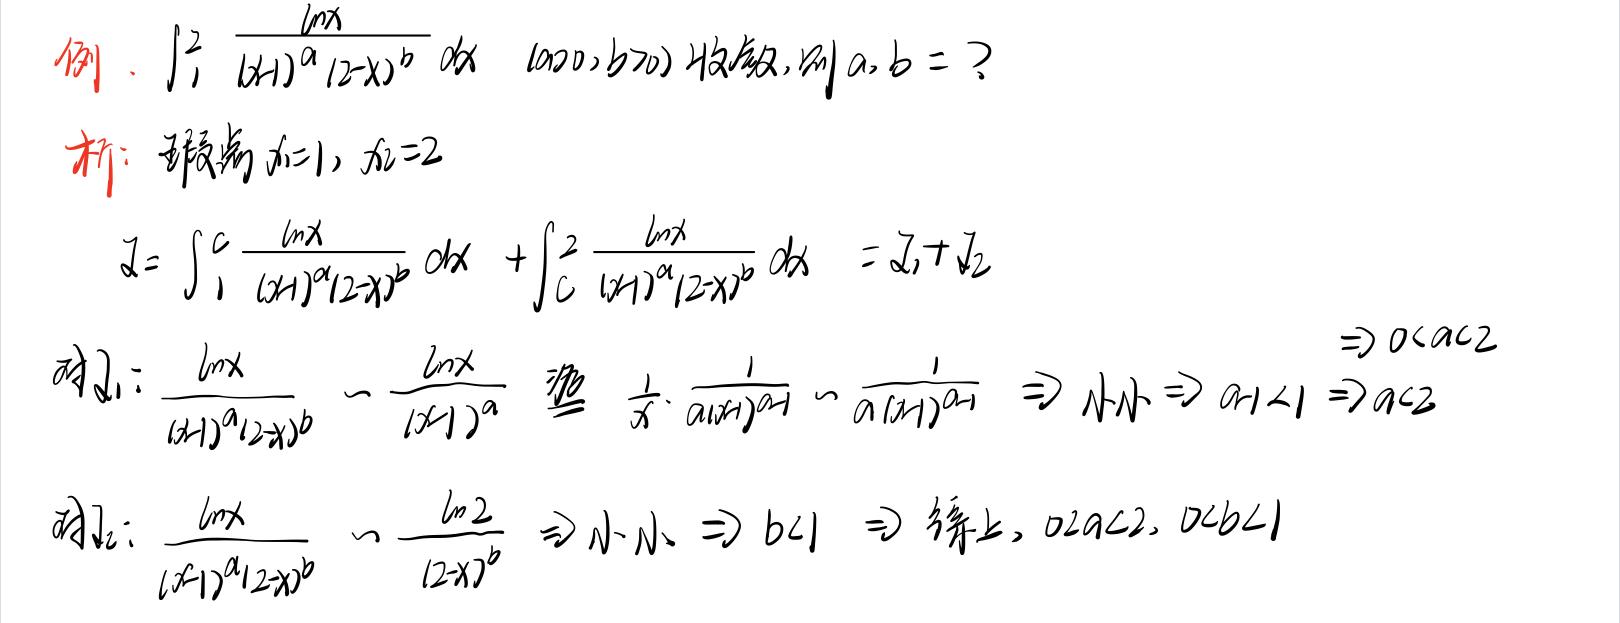 例. ∫₁² lnx/((x-1)^a(2-x)^b) dx (a>0, b>0) 收敛, 则 a, b = ?
析: 瑕点 x₁=1, x₂=2
I = ∫₁^c lnx/((x-1)^a(2-x)^b) dx + ∫_c² lnx/((x-1)^a(2-x)^b) dx = I₁+I₂
对I₁: lnx/((x-1)^a(2-x)^b) ~ lnx/(x-1)^a 洛= 1/x · 1/(a(x-1)^(a-1)) ~ 1/(a(x-1)^(a-1)) ⇒ 小小 ⇒ a-1<1 ⇒ a<2 ⇒ 0<a<2
对I₂: lnx/((x-1)^a(2-x)^b) ~ ln2/(2-x)^b ⇒ 小小 ⇒ b<1 ⇒ 综上, 0<a<2, 0<b<1